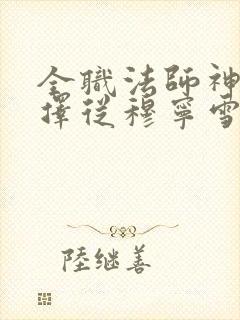 全職法師神
擇從穆寧雪
陸継善